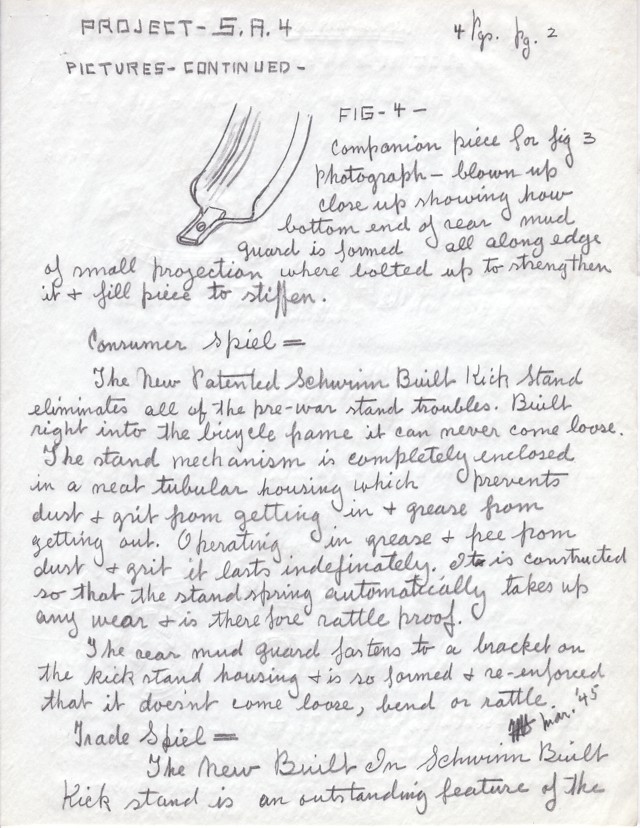 PROJECT - S.A. 4
4 Pgs. pg. 2
PICTURES - CONTINUED -
FIG - 4 -
Companion piece for fig 3
photograph - blown up
close up showing how
bottom end of rear mud
guard is formed all along edge
of small projection where bolted up to strengthen
it & fill piece to stiffen.
Consumer Spiel =
The New Patented Schwinn Built Kick Stand
eliminates all of the pre-war stand troubles. Built
right into the bicycle frame it can never come loose.
The stand mechanism is completely enclosed
in a neat tubular housing which prevents
dust & grit from getting in & grease from
getting out. Operating in grease & free from
dust & grit it lasts indefinately. It is constructed
so that the stand spring automatically takes up
any wear & is therefore rattle proof.
The rear mud guard fastens to a bracket on
the kick stand housing & is so formed & re-enforced
that it doesn't come loose, bend or rattle.
Mar. '45
Trade Spiel =
The New Built In Schwinn Built
Kick stand is an outstanding feature of the